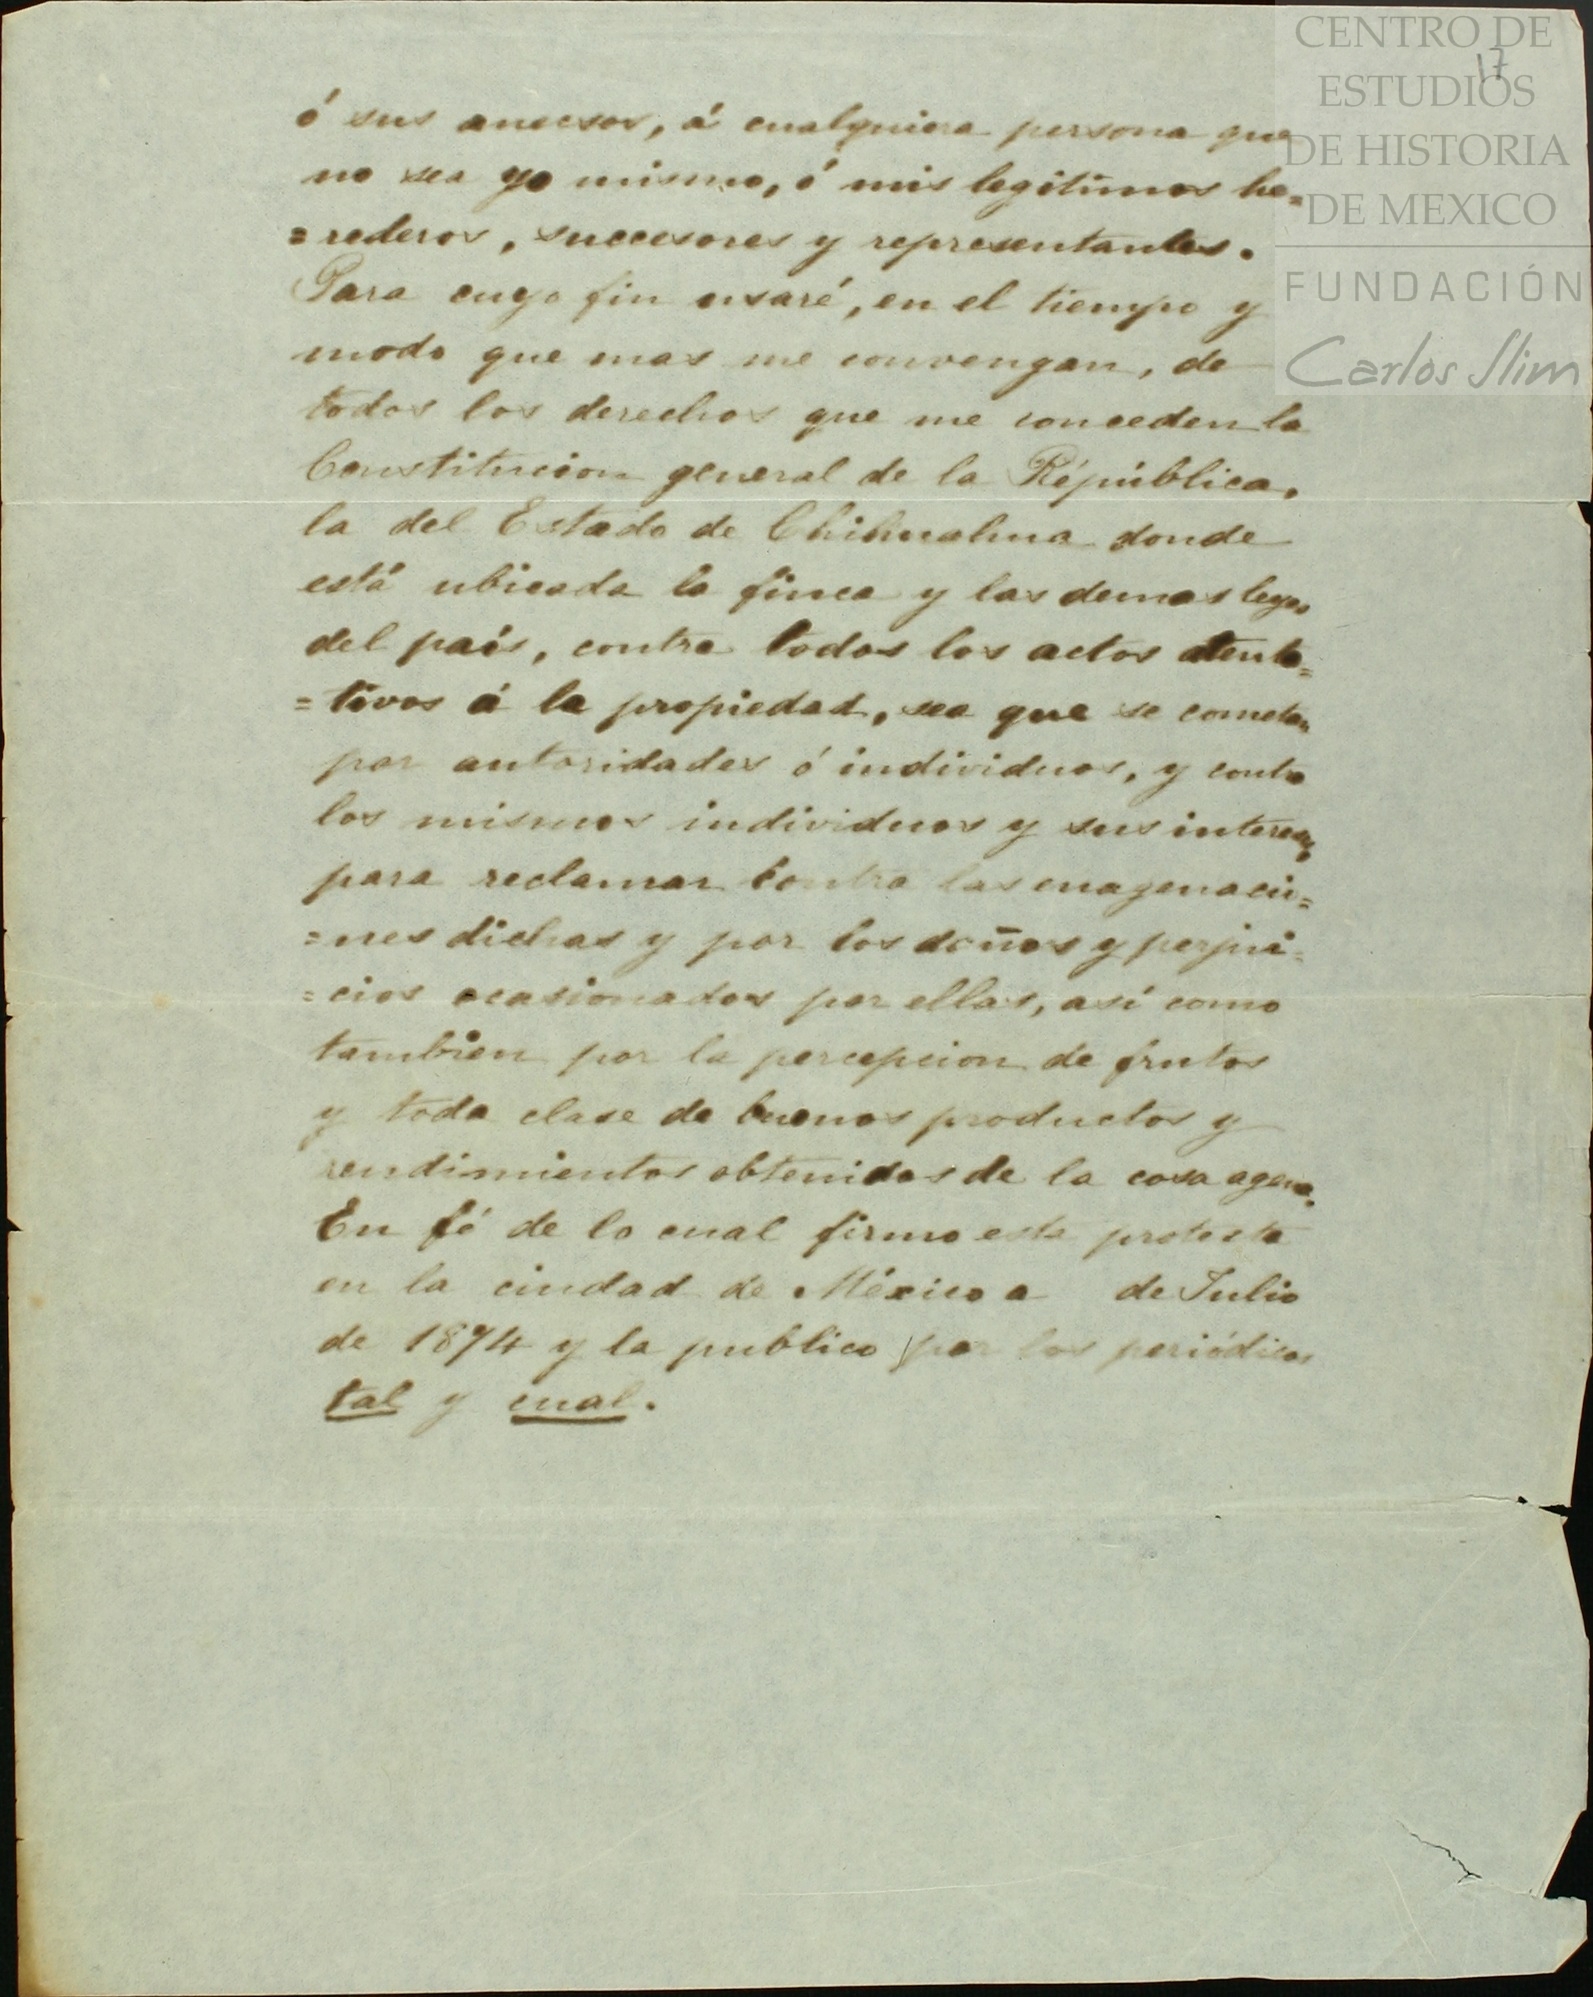 CENTRO DE
ESTUDIOS
DE HISTORIA
DE MEXICO
FUNDACIÓN
Carlos Slim
17
ó sus anecsos, á cualquiera persona que
no sea yo mismo, ó mis legitimos he=
=rederos, succesores y representantes.
Para cuyo fin usaré, en el tiempo y
modo que mas me convengan, de
todos los derechos que me conceden la
Constitucion general de la Répública,
la del Estado de Chihuahua donde
está ubicada la finca y las demas leyes
del país, contra todos los actos atenta=
=tivos á la propiedad, sea que se cometan
por autoridades ó individuos, y contra
los mismos individuos y sus intereses,
para reclamar contra las enagenacio=
=nes dichas y por los daños y perjui=
=cios ocasionados por ellas, asi como
tambien por la percepcion de frutos
y toda clase de buenos productos y
rendimientos obtenidos de la cosa agena.
En fé de lo cual firmo esta protesta
en la ciudad de México a de Julio
de 1874 y la publico por los periódicos
tal y cual.